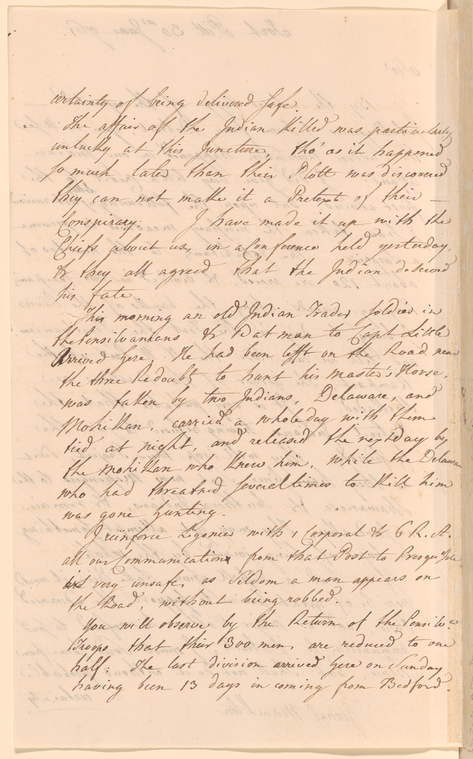 certainty of being delivered safe.
The affair off the Indian Killed was particularly
unlucky at this Juncture, tho' as it happened
so much later than their Plott was discovered
they can not make it a Pretext of their —
Conspiracy. I have made it up with the
Chiefs about us, in a Conference held yesterday
& they all agreed that the Indian deserved
his fate.
This morning an old Indian Trader Soldier in
the Pensilvanians & Batman to Capt Little
Arrived here, He had been left on the Road near
the three Redoubts to hunt his Master's Horse.
was taken by two Indians, Delaware, and
Mohikan, carried a whole day with them
tied at night, and released the next day by
the Mohikan who knew him, while the Delaware
who had threatned several times to Kill him
was gone hunting.
I reinforce Ligonier with 1 Corporal & 6 R. A.
all our Communication from that Post to Presqu'Isle
is very unsafe, as Seldom a man appears on
the Road, without being robbed.
You will observe by the Return of the Pensilv.
Troops that their 300 men, are reduced to one
half. The last division arrived here on Sunday
having been 13 days in coming from Bedford.